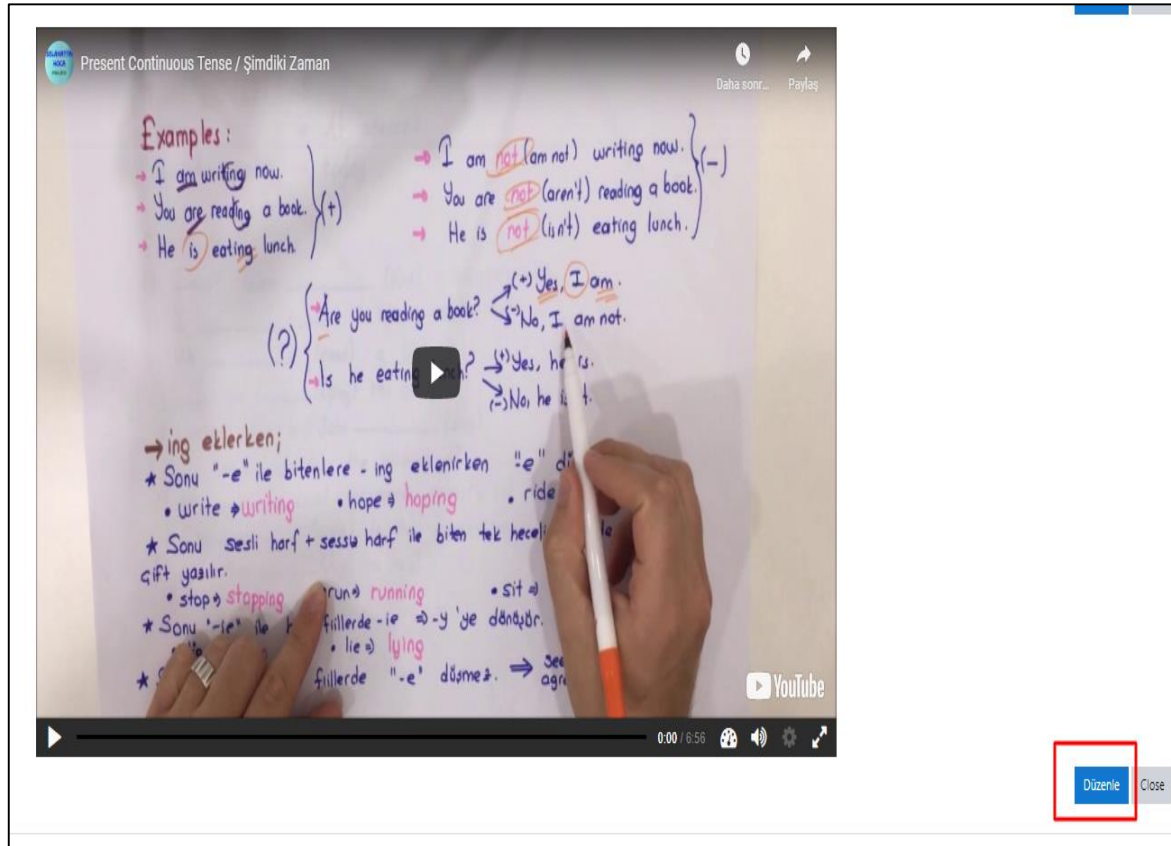 Present Continuous Tense / Şimdiki Zaman
Daha sonr... Paylaş
Examples:
I am writing now.
You are reading a book. (+)
He is eating lunch
I am not (am not) writing now.
You are not (aren't) reading a book. (-)
He is not (isn't) eating lunch.
(?)
Are you reading a book?
(+) Yes, I am.
(-) No, I am not.
Is he eating
(+) Yes, he is.
(-) No, he
→ ing eklerken;
★ Sonu "-e" ile bitenlere - ing eklenirken "-e"
• write → writing • hope → hoping • ride
★ Sonu sesli harf + sessiz harf ile biten tek
çift yazılır.
• stop → stopping run → running • sit ⇒
★ Sonu "-ie" ile fiillerde -ie ⇒ -y 'ye dönüşür.
• lie ⇒ lying
★ fiillerde "-e" düşmez. ⇒
YouTube
0:00 / 6:56
Düzenle Close